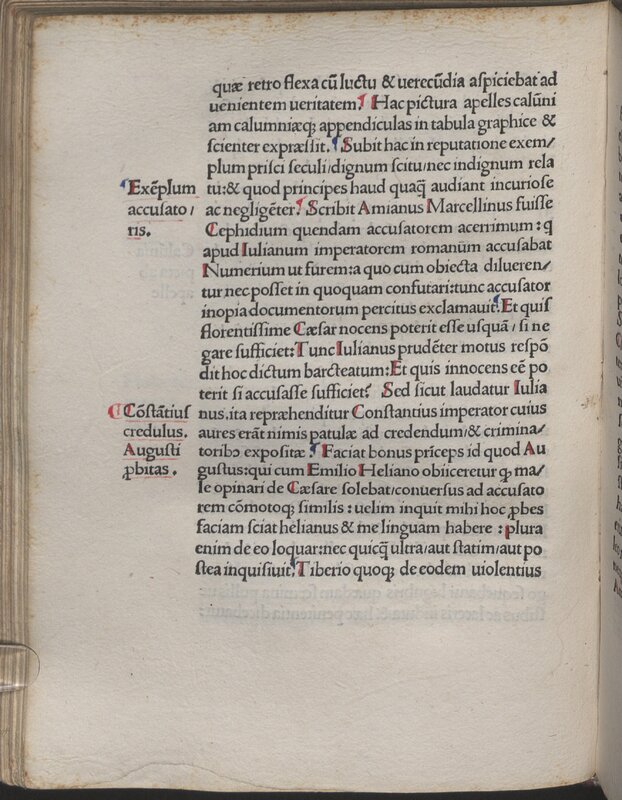 quæ retro flexa cū luctu & uerecūdia aspiciebat ad
uenientem ueritatem. Hac pictura apelles calūni
am calumniæq; appendiculas in tabula graphice &
scienter expræssit. Subit hac in reputatione exem/
plum prisci seculi/dignum scitu/nec indignum rela
Exēplum
accusato/
ris.
tu:& quod principes haud quaq̄ audiant incuriose
ac negligēter. Scribit Amianus Marcellinus fuisse
Cephidium quendam accusatorem acerrimum: q
apud Iulianum imperatorem romanūm accusabat
Numerium ut furem:a quo cum obiecta dilueren/
tur nec posset in quoquam confutari:tunc accusator
inopia documentorum percitus exclamauit. Et quis
florentissime Cæsar nocens poterit esse usquā/si ne
gare sufficiet: Tunc Iulianus prudēter motus respō
dit hoc dictum barcteatum: Et quis innocens eē po
terit si accusasse sufficiet? Sed sicut laudatur Iulia
Cōstātius
credulus.
Augusti
ꝓbitas.
nus.ita repræhenditur Constantius imperator cuius
aures erāt nimis patulæ ad credendum/& crimina/
toribꝫ expositæ: Faciat bonus prīceps id quod Au
gustus:qui cum Emilio Heliano obiiceretur ꝙ ma/
le opinari de Cæsare solebat/conuersus ad accusato
rem cōmotoq; similis: uelim inquit mihi hoc ꝓbes
faciam sciat helianus & me linguam habere: plura
enim de eo loquar:nec quicq̄ ultra/aut statim/aut po
stea inquisiuit. Tiberio quoq; de eodem uiolentius